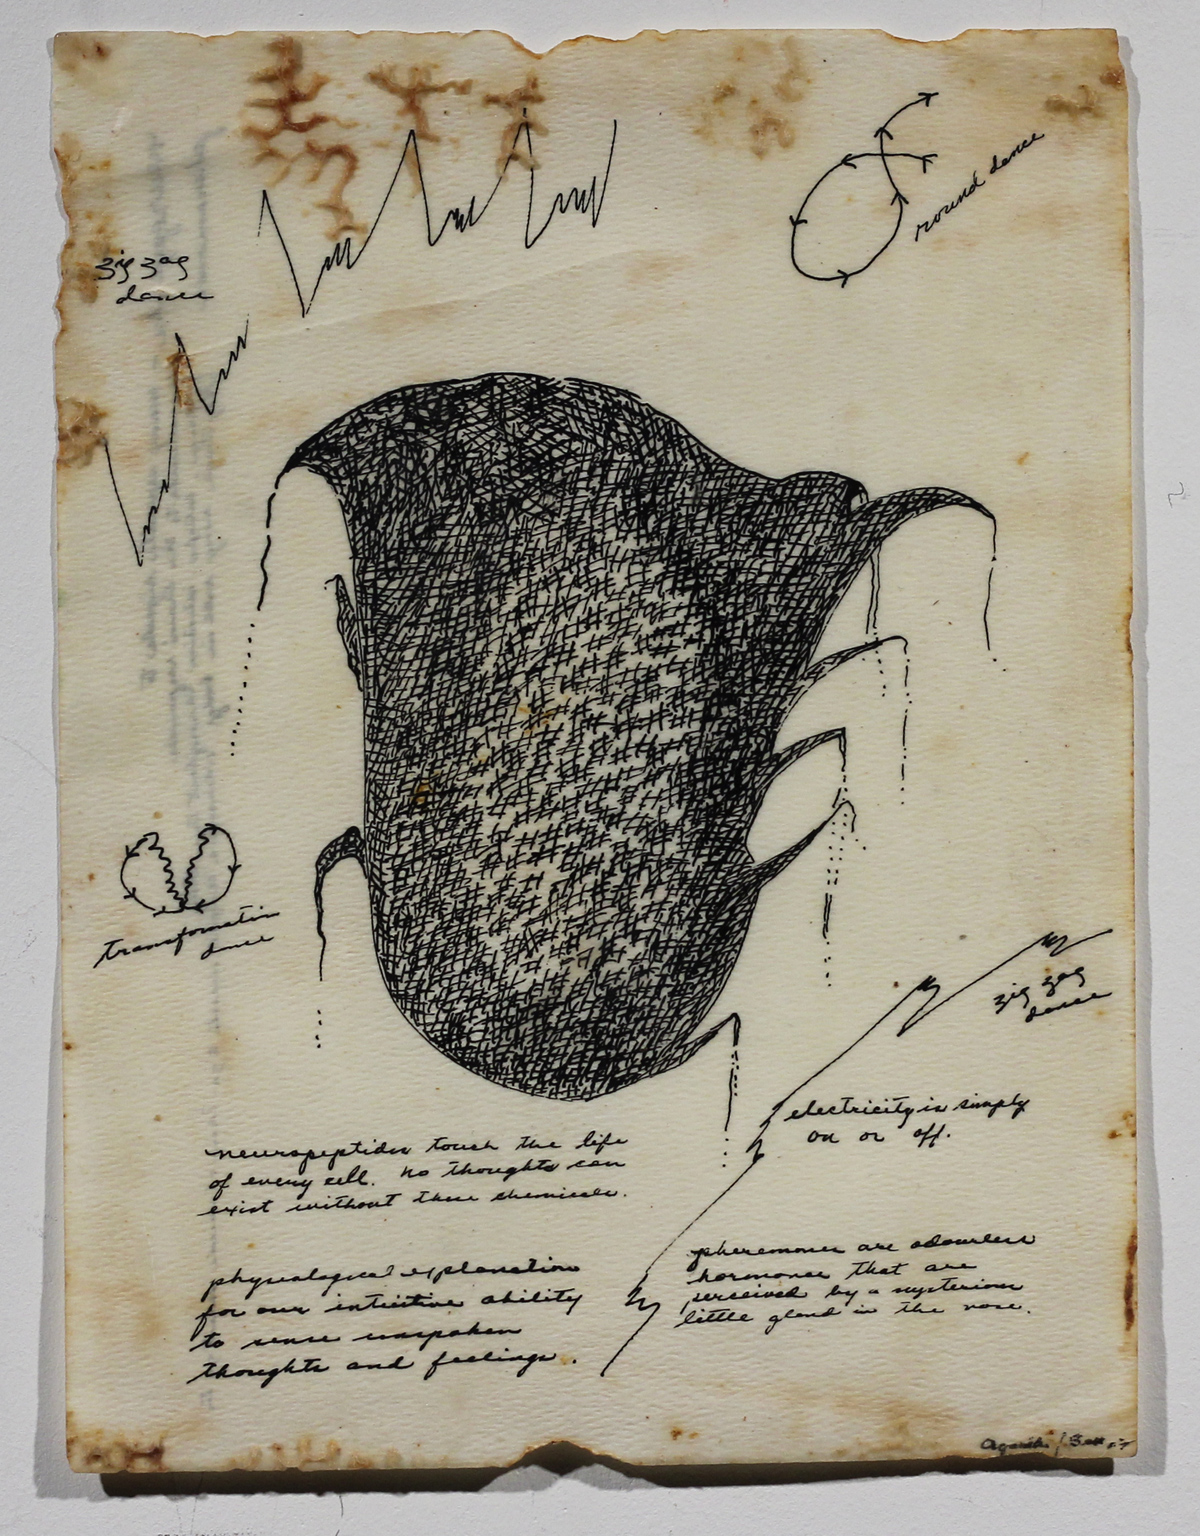 round dance
zig zag
dance
transformatin
dance
zig zag
dance
electricity is simply
on or off.
neuropeptides touch the life
of every cell. no thoughts can
exist without these chemicals.
pheromones are odourless
hormones that are
perceived by a mysterious
little gland in the nose.
physealogical explanation
for our intuitive ability
to sense unspoken
thoughts and feelings.